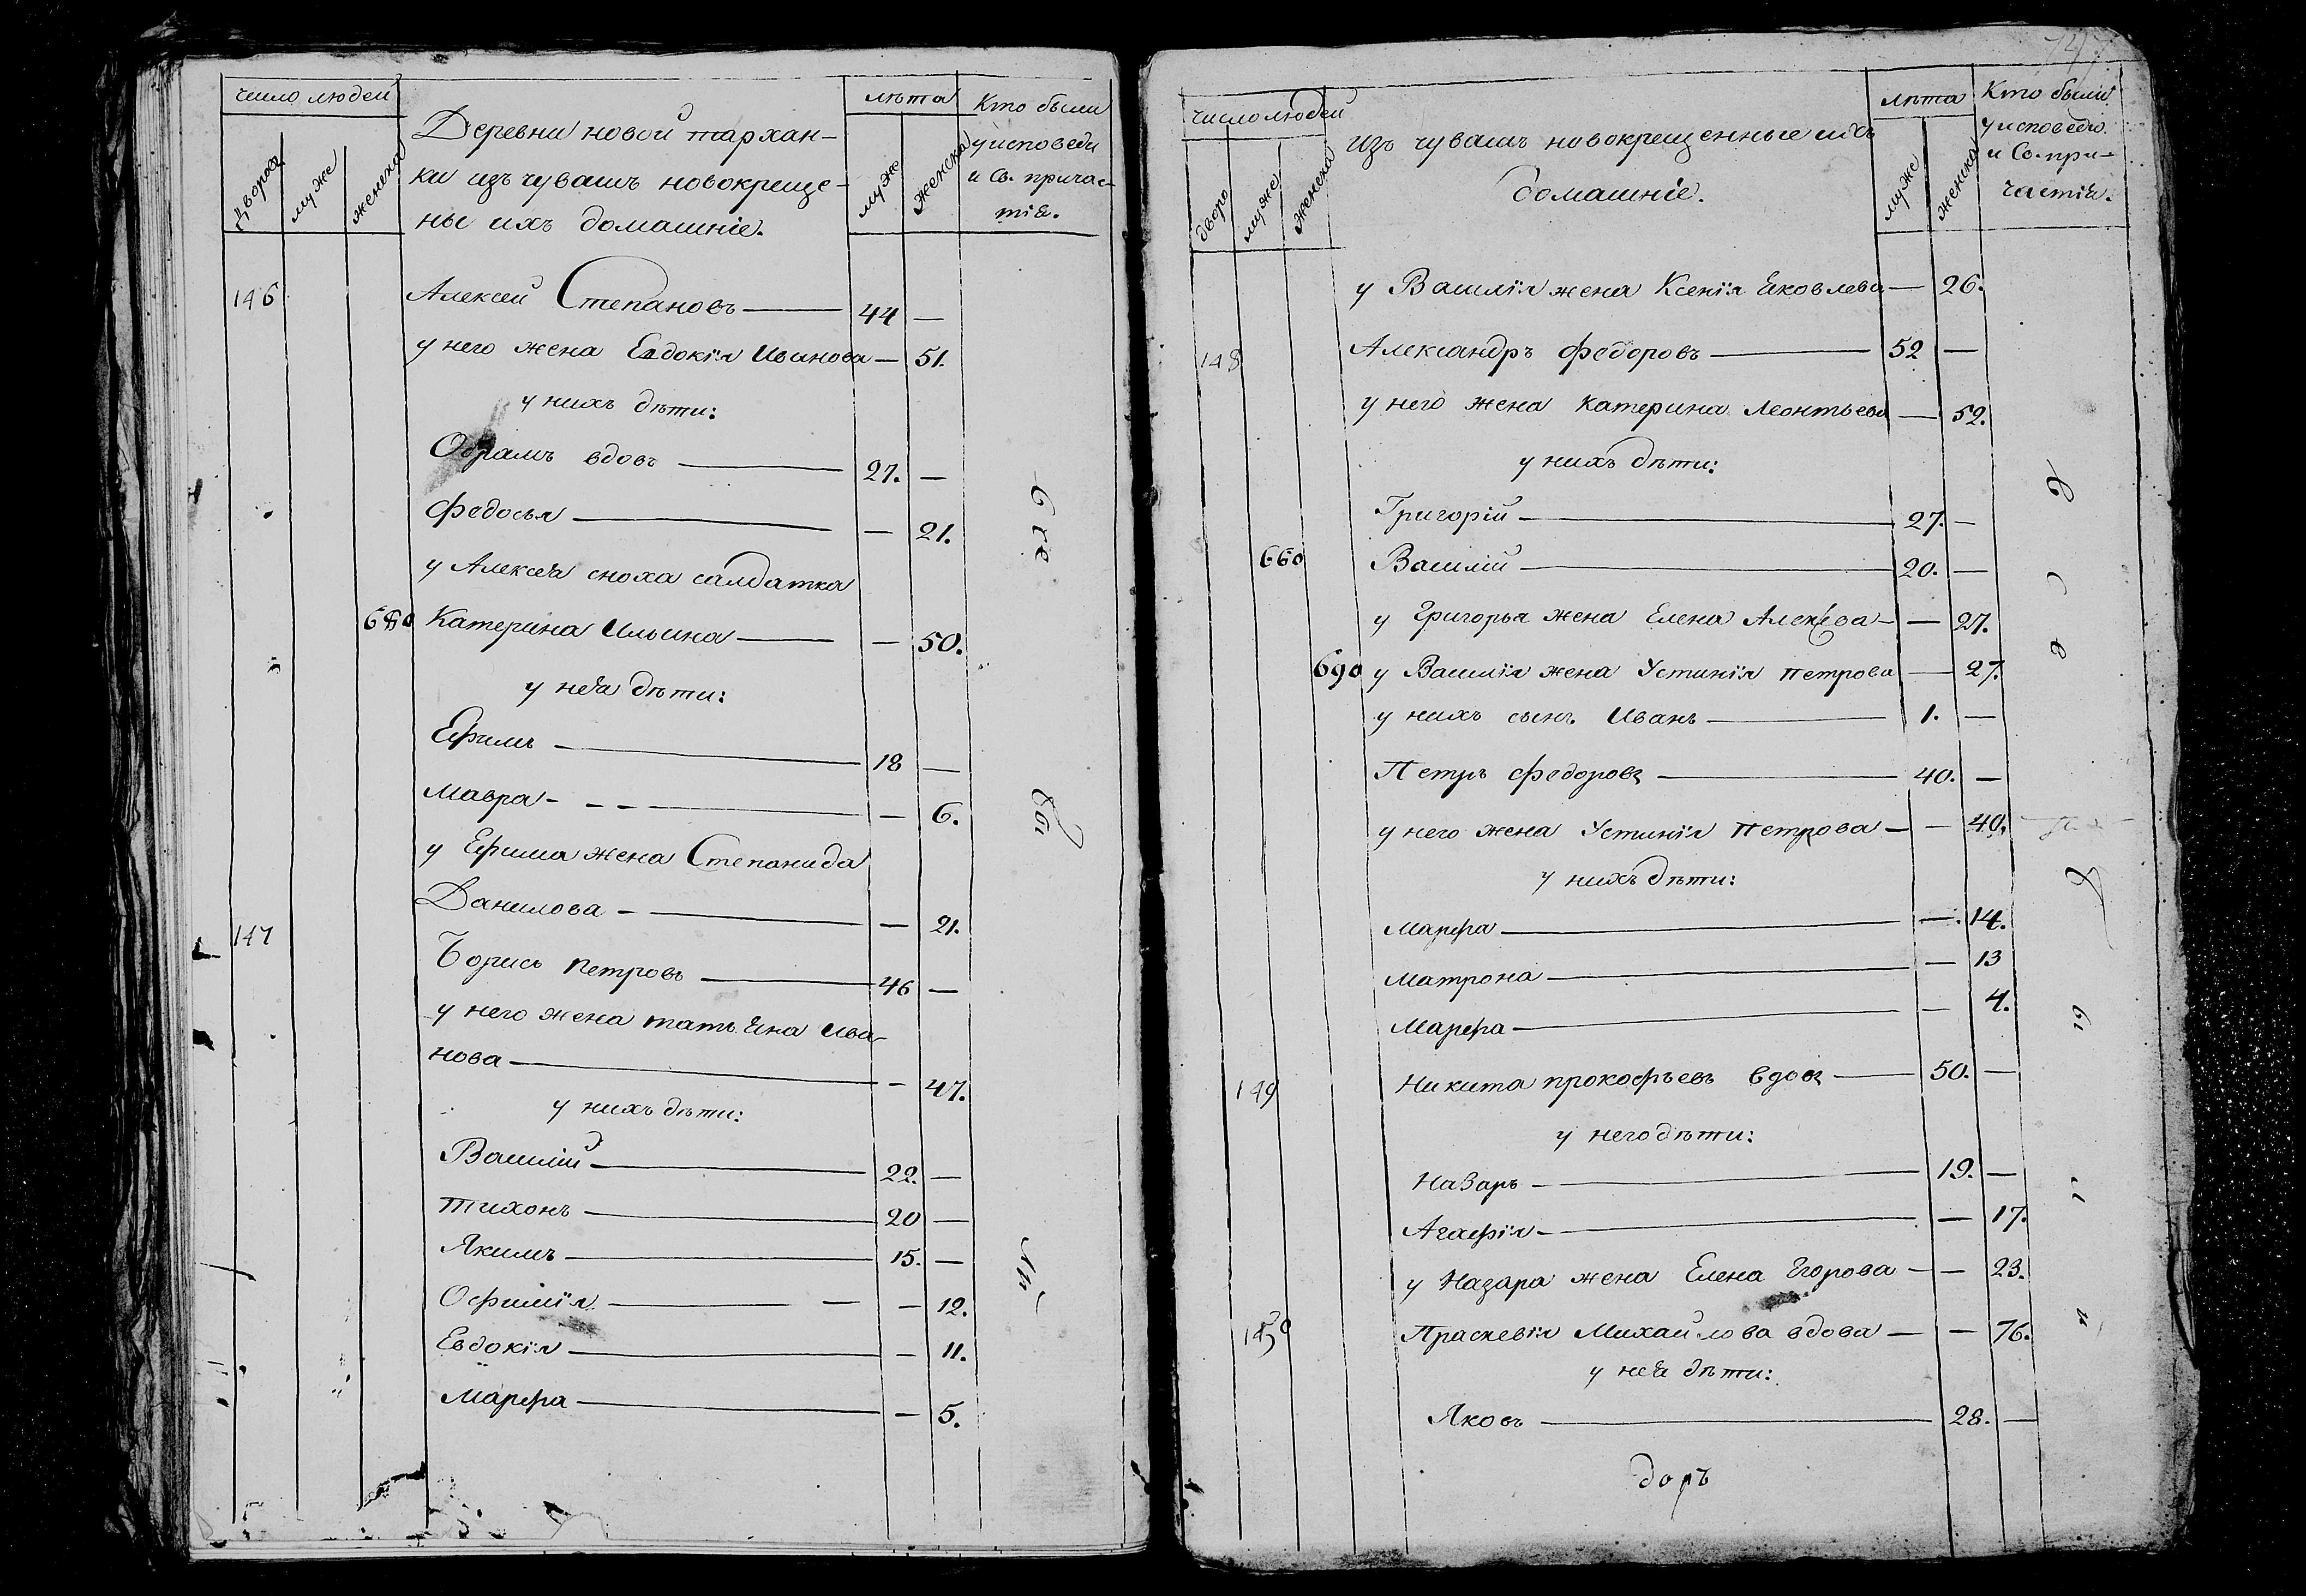 число людей
дворов
муже
женска
Деревни новой тархан-
ки изъ чувашъ новокреще-
ны ихъ домашніе.
лѣта
муже
женска
Кто были
у исповеди
и Св. причас-
тія.
146
Алексей Степановъ — 44 —
у него жена Евдокія Иванова — 51.
у нихъ дѣти:
Обрамъ вдовъ — 27. —
Федосья — — 21.
у Алексѣя сноха салдатка
680 Катерина Ильина — — 50.
у нея дѣти:
Ефимъ — 18 —
Мавра — — 6.
у Ефима жена Степанида
Данилова — — 21.
147
Борисъ Петровъ — 46 —
у него жена татьяна Ива-
нова — — 47.
у нихъ дѣти:
Василій — 22. —
Тихонъ — 20 —
Якимъ — 15. —
Офимія — — 12.
Евдокія — — 11.
Марфа — — 5.
Всѣ
были
747
число людей
дворо
муже
женска
изъ чувашъ новокрещенные ихъ
домашніе.
лѣта
муже
женска
Кто были
у исповеди
и Св. при-
частія.
у Василія жена Ксенія Яковлева — 26.
148 Александръ Федоровъ — 52 —
у него жена Катерина Леонтьева — 52.
у нихъ дѣти:
Григорій — 27. —
660 Василій — 20. —
у Григорья жена Елена Алексѣва — — 27.
690 у Василія жена Устинія Петрова — 27.
у нихъ сынъ Иванъ — 1. —
Петръ Федоровъ — 40. —
у него жена Устинія Петрова — — 40.
у нихъ дѣти:
Марфа — — 14.
Матрона — — 13
Марфа — — 4.
149 Никита прокофьевъ вдовъ — 50. —
у него дѣти:
Назаръ — 19. —
Агафія — — 17.
у Назара жена Елена Егорова — — 23.
150 Праскевія Михайлова вдова — — 76.
у нея дѣти:
Яковъ — 28. —
доръ